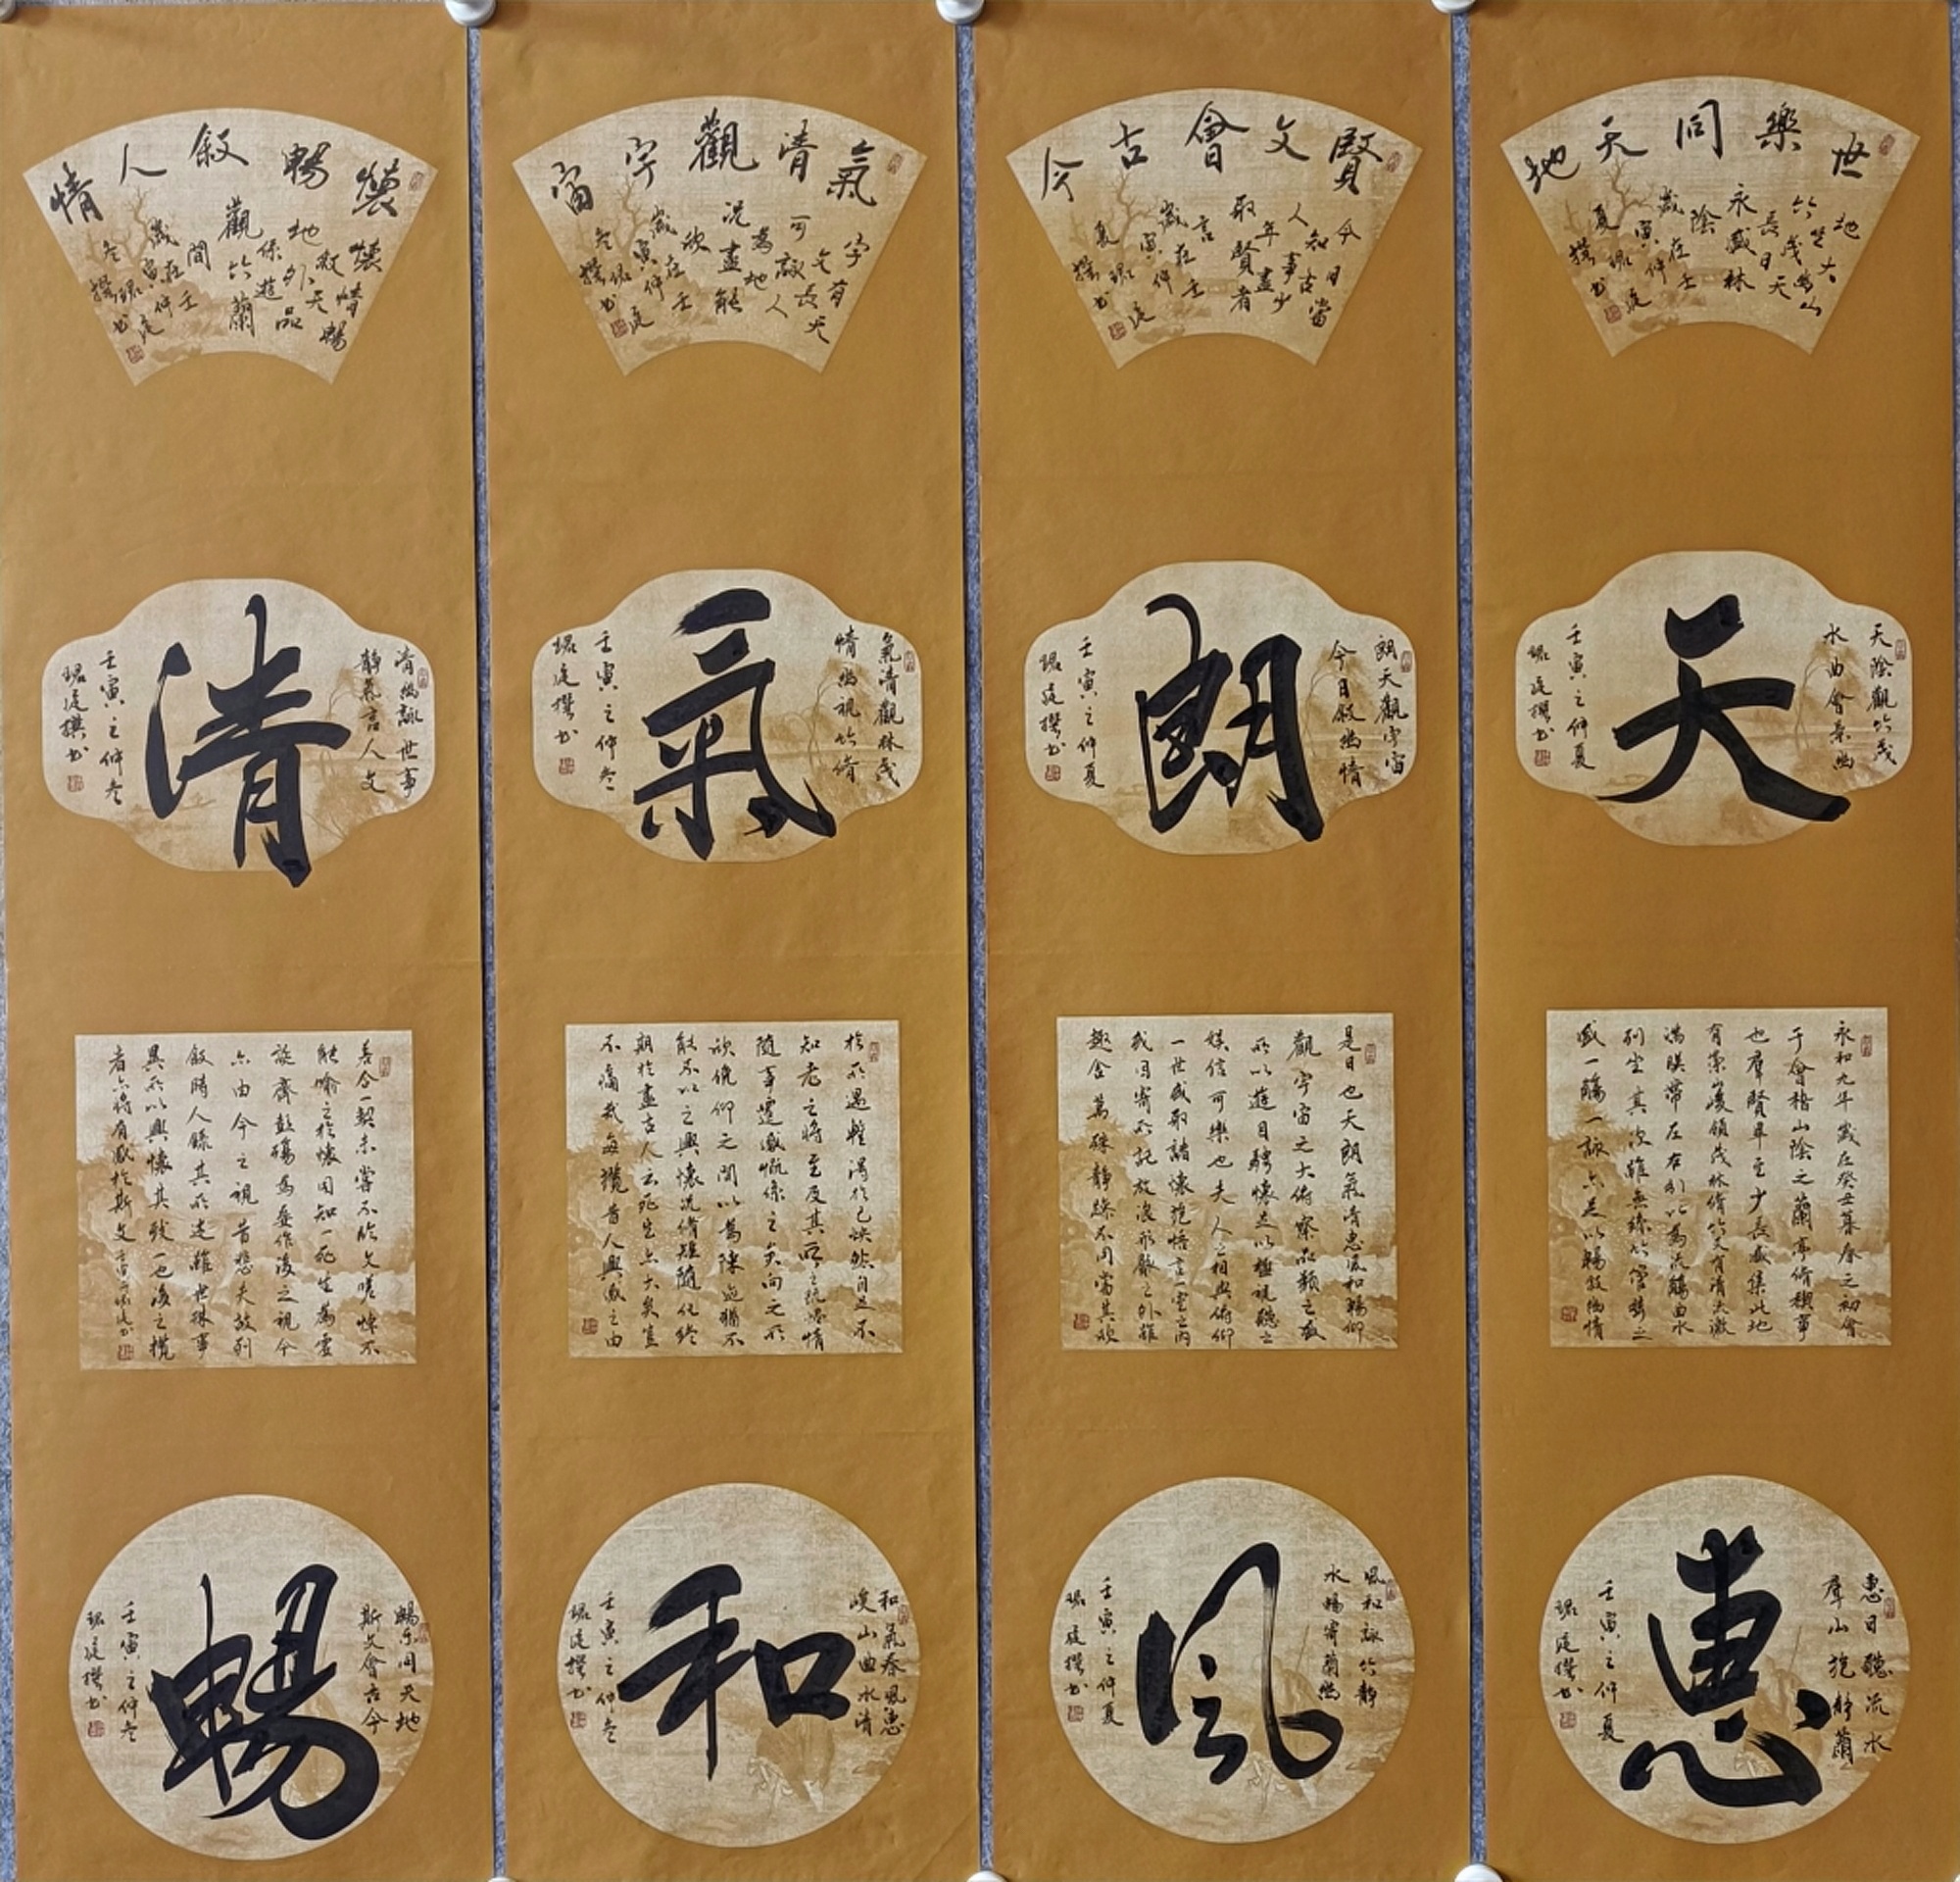 世樂同天地
永盛林
陰
歲在壬
寅仲夏
琨庭
撰書
天陰觀竹茂
水曲會氣幽
天
壬寅之仲夏
琨庭撰書
永和九年歲在癸丑暮春之初會
于會稽山陰之蘭亭脩稧事
也羣賢畢至少長咸集此地
有崇山峻領茂林脩竹又有清流激
湍暎帶左右引以為流觴曲水
列坐其次雖無絲竹管弦之
盛一觴一詠亦足以暢敘幽情
惠日聽流水
羣山抱靜蘭
惠
壬寅之仲夏
琨庭撰書
賢文會古今
今日當
人知古
年事少
取賢者
言
歲在壬
寅仲
夏琨庭
撰書
朗天觀宇宙
今日敘幽情
朗
壬寅之仲夏
琨庭撰書
是日也天朗氣清惠風和暢仰
觀宇宙之大俯察品類之盛
所以遊目騁懷足以極視聽之
娛信可樂也夫人之相與俯仰
一世或取諸懷抱悟言一室之內
或因寄所託放浪形骸之外雖
趣舍萬殊靜躁不同當其欣
風和詠竹靜
水暢寄蘭幽
風
壬寅之仲夏
琨庭撰書
氣清觀宇宙
字有天
文長人
況盡能
欣
歲在壬
寅仲
冬琨庭
撰書
氣清觀林茂
情幽視竹脩
氣
壬寅之仲冬
琨庭撰書
於所遇蹔得於己怏然自足不
知老之將至及其所之既惓情
隨事遷感慨係之矣向之所
欣俛仰之間以為陳迹猶不
能不以之興懷況脩短隨化終
期於盡古人云死生亦大矣豈
不痛哉每攬昔人興感之由
和氣春風惠
峻山曲水清
和
壬寅之仲冬
琨庭撰書
懷暢敘人情
懷情暢
地外品
係遊
觀竹蘭
間
歲在壬
寅仲
冬琨庭
撰書
清幽詠世事
靜氣言人文
清
壬寅之仲冬
琨庭撰書
若合一契未嘗不臨文嗟悼不
能喻之於懷固知一死生為虛
誕齊彭殤為妄作後之視今
亦由今之視昔悲夫故列
敘時人錄其所述雖世殊事
異所以興懷其致一也後之攬
者亦將有感於斯文壬寅琨庭書
暢樂同天地
斯文會古今
暢
壬寅之仲冬
琨庭撰書